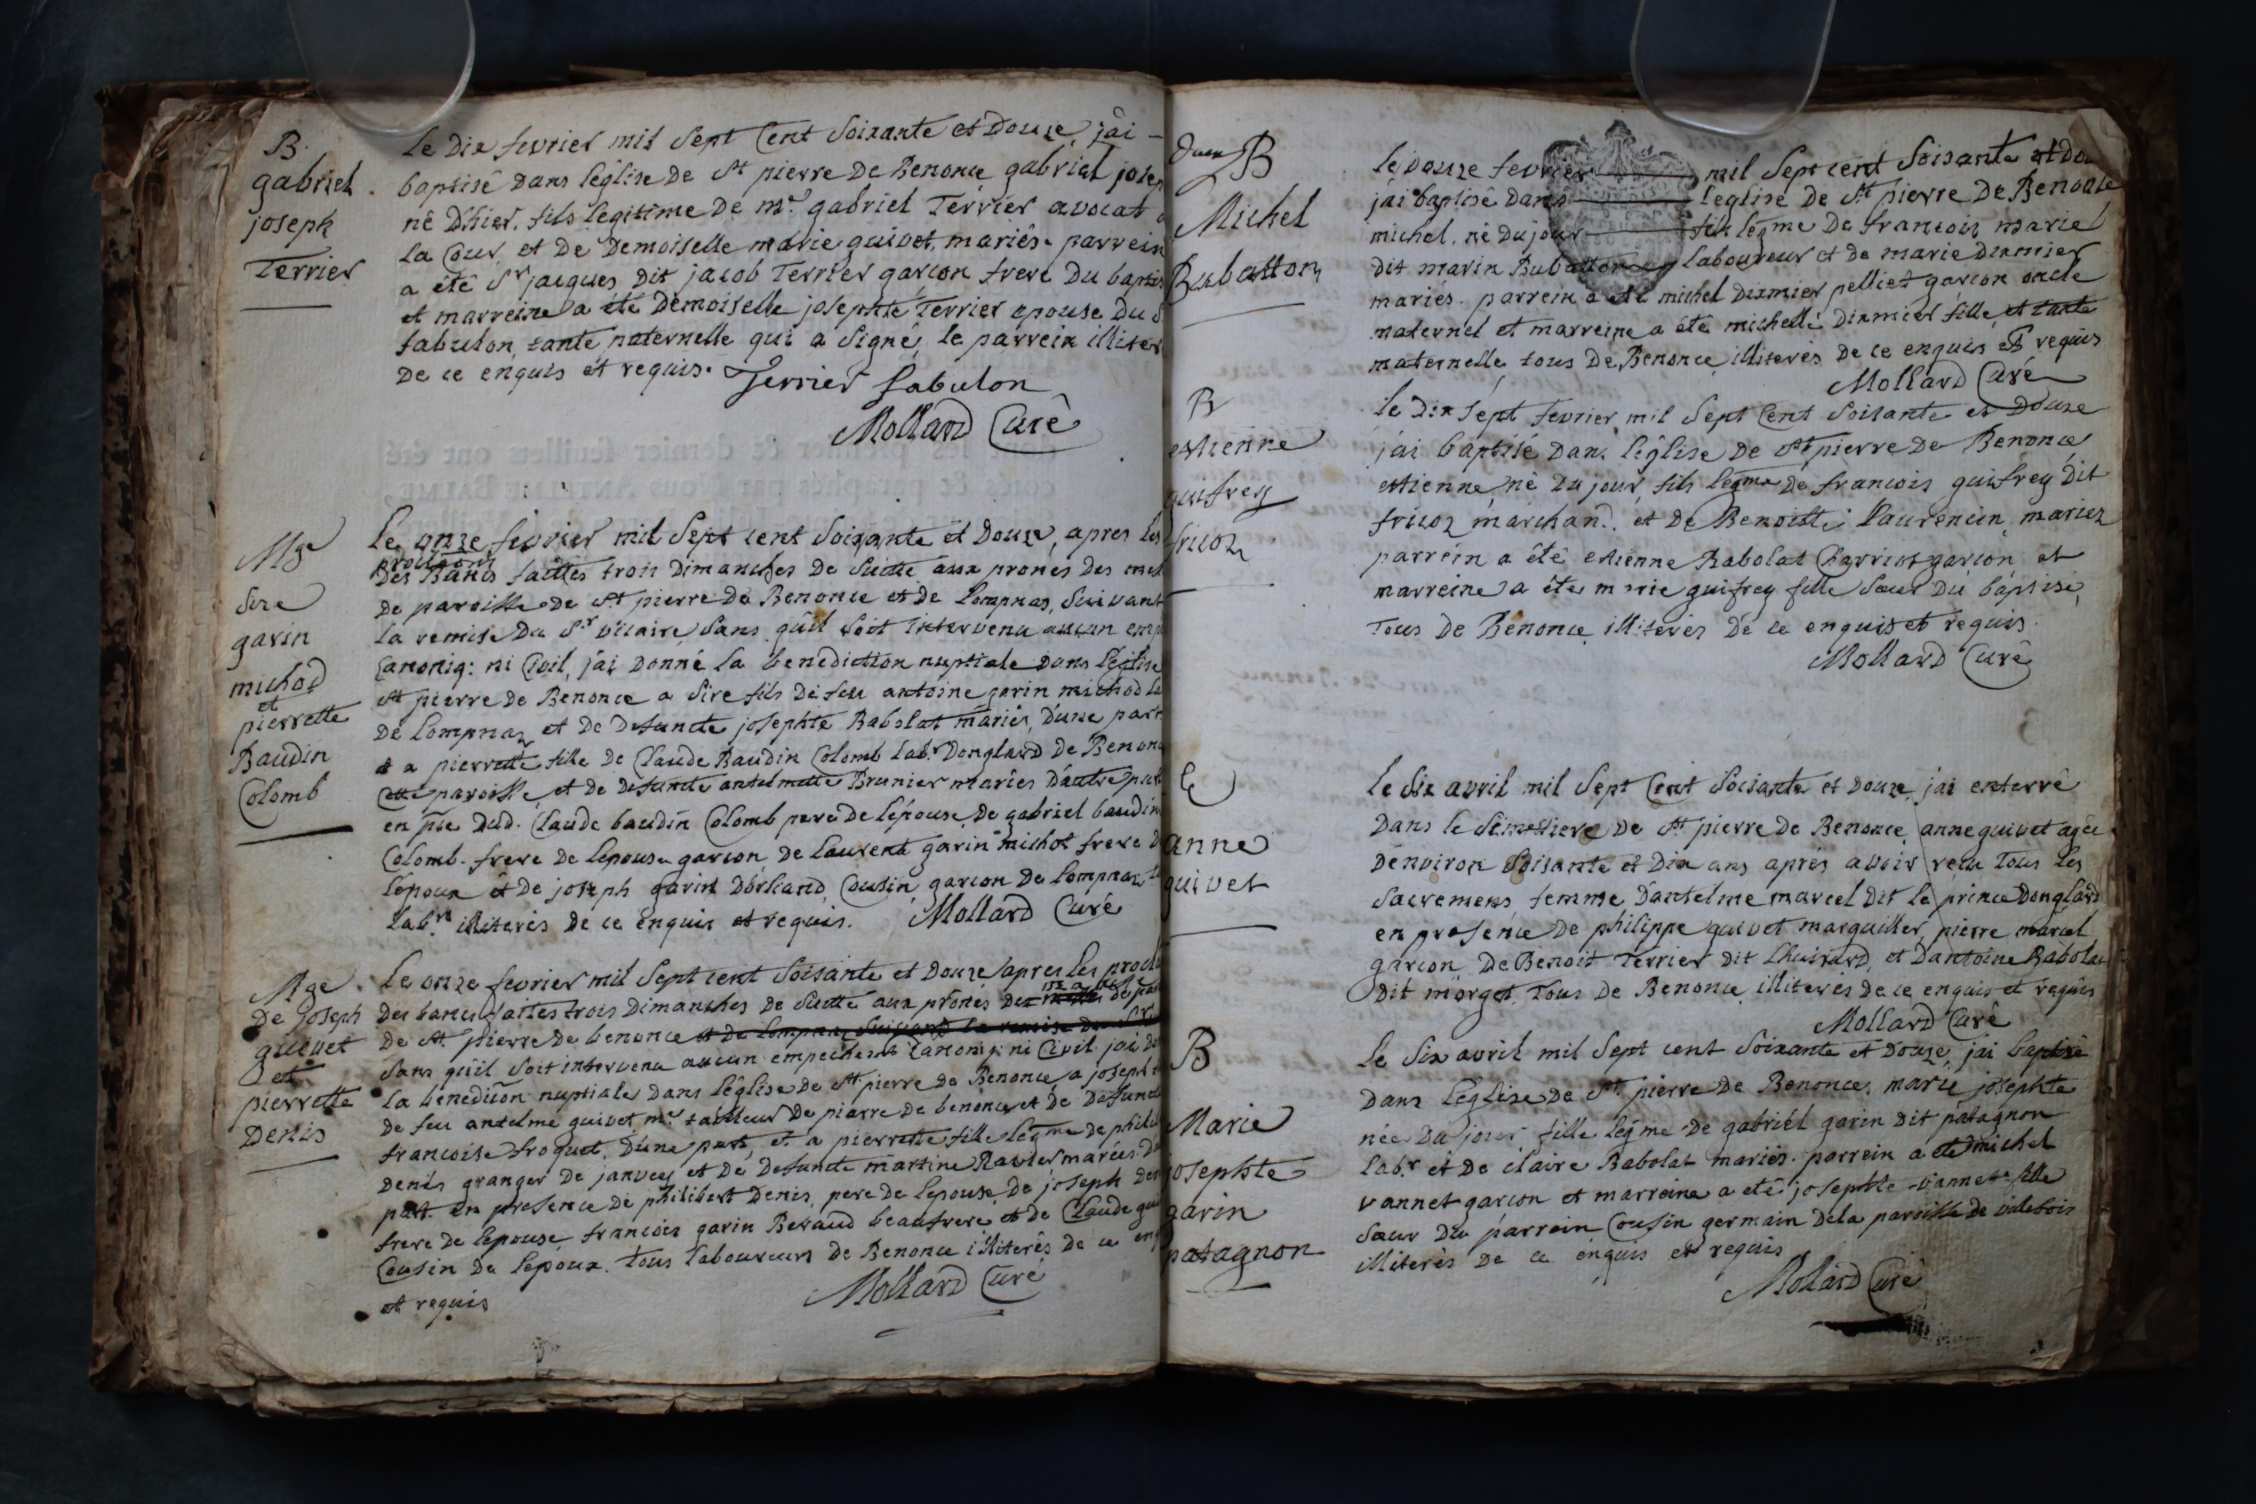 B.
gabriel
joseph
Terrier
Le Dix fevrier mil Sept Cent Soixante et Douze, j'ai -
baptisé Dans l'église de St pierre De Benonce gabriel josep
né D'hier, fils légitime De mr. gabriel Terrier avocat
la Cour, et De Demoiselle marie guivet, mariés. parrein
a été Sr jacques Dit jacob Terrier garçon frere Du baptis
et marreine a été Demoiselle josephte Terrier epouse Du
fabulon, tante paternelle qui a Signé, le parrein illiter
De ce enquis et requis. Terrier fabulon
Mollard Curé
Mge
Sire
garin
michod
et
pierrette
Baudin
Colomb
Le onze fevrier mil Sept cent Soixante et Douze, apres les
proclam.
Des Bancs faittes trois Dimanches De Suitte aux prones des
De paroisse De St pierre De Benonce et de Lompnas, Suivant
la remise Du Sr. vicaire Sans qu'il Soit intervenu aucun
Canoniq: ni Civil, j'ai Donné la benediction nuptiale Dans l'église
St pierre De Benonce a Sire fils De feu antoine garin michod
De Lompnaz, et de Defuncte josephte Rabolat mariés, D'une part
et a pierrette fille De Claude Baudin Colomb lab.r Donglard De Benon
Cette paroisse, et de Defuncte antelmette Brunier mariés D'autre part
en pce Dud. Claude baudin Colomb pere De l'épouse, De gabriel baudin
Colomb frere De l'epouse garçon, De Laurent garin michod frere
l'époux et De joseph garin Dorland, Cousin, garçon De Lompnaz
lab.rs illiterés De ce enquis et requis. Mollard Curé
Mge
De joseph
guivet
et
pierrette
Denis
Le onze fevrier mil Sept cent Soixante et Douze, apres les procla
Des bancs faites trois Dimanches De Suitte aux prones
De St pierre De benonce et De Lompnaz Suivant la remise
Sans qu'il Soit intervenu aucun empechemt Canoniq: ni Civil j'ai
la benediction nuptiale Dans l'église De St pierre De Benonce, a joseph
De feu antelme guivet mr. tailleur De pierre De benonce et De Defunct
francoise froquet, D'une part, et a pierrette fille legme De phili
Denis granger De janvey, et De Defuncte martine Ravier mariés
part en presence De philibert Denis, pere De l'epouse, De joseph
frere De l'epouse, francois garin Beraud beaufrere, et De Claude
Cousin De l'epoux. Tous laboureurs De Benonce illiterés De ce enq
et requis
Mollard Curé
B
Michel
Rubatton
Le Douze fevrier mil Sept cent Soixante et Dou
j'ai baptisé Dans l'église De St pierre De Benonce
michel, né Du jour fils legme De francois marie
Dit marin Rubatton laboureur et De marie Diamier
mariés. parrein a été michel Diamier pelliet garçon oncle
maternel et marreine a été michelle Diamier fille, et tante
maternelle, tous De Benonce illiterés De ce enquis et requis
Mollard Curé
B
estienne
guifrey
fricoz
le Dix Sept fevrier mil Sept Cent Soixante et Douze
j'ai baptisé Dans l'église De St pierre De Benonce
estienne, né Du jour, fils legme De francois guifrey Dit
fricoz marchand, et De Benoitte Laurencin mariez
parrein a été etienne Rabolat Charriot garçon, et
marreine a été marie guifrey fille Sœur Du baptisé,
Tous De Benonce illiterés De ce enquis et requis.
Mollard Curé
E
anne
guivet
Le Six avril mil Sept Cent Soixante et Douze, j'ai enterré
Dans le Semetiere De St pierre De Benonce anne guivet agée
D'environ Soixante et Dix ans aprés avoir recu Tous les
Sacremens, femme D'antelme marcel Dit le prince Donglard
en presence De philippe guivet marguiller, pierre marcel
garçon, De Benoit Terrier Dit Lhuirard, et D'antoine Rabolat
Dit morget, Tous De Benonce illiterés De ce enquis et requis
Mollard Curé
B
Marie
josephte
garin
patagnon
Le Six avril mil Sept cent Soixante et Douze, j'ai baptisé
Dans l'église De St pierre De Benonce, marie josephte
née Du jour, fille legme De gabriel garin Dit patagnon
lab.r et De claire Rabolat mariés. parrein a été michel
vannet garçon et marreine a eté josephte vannet fille
Sœur Du parrein Cousin germain De la paroisse De vilebois
illiterés De ce enquis et requis
Mollard Curé